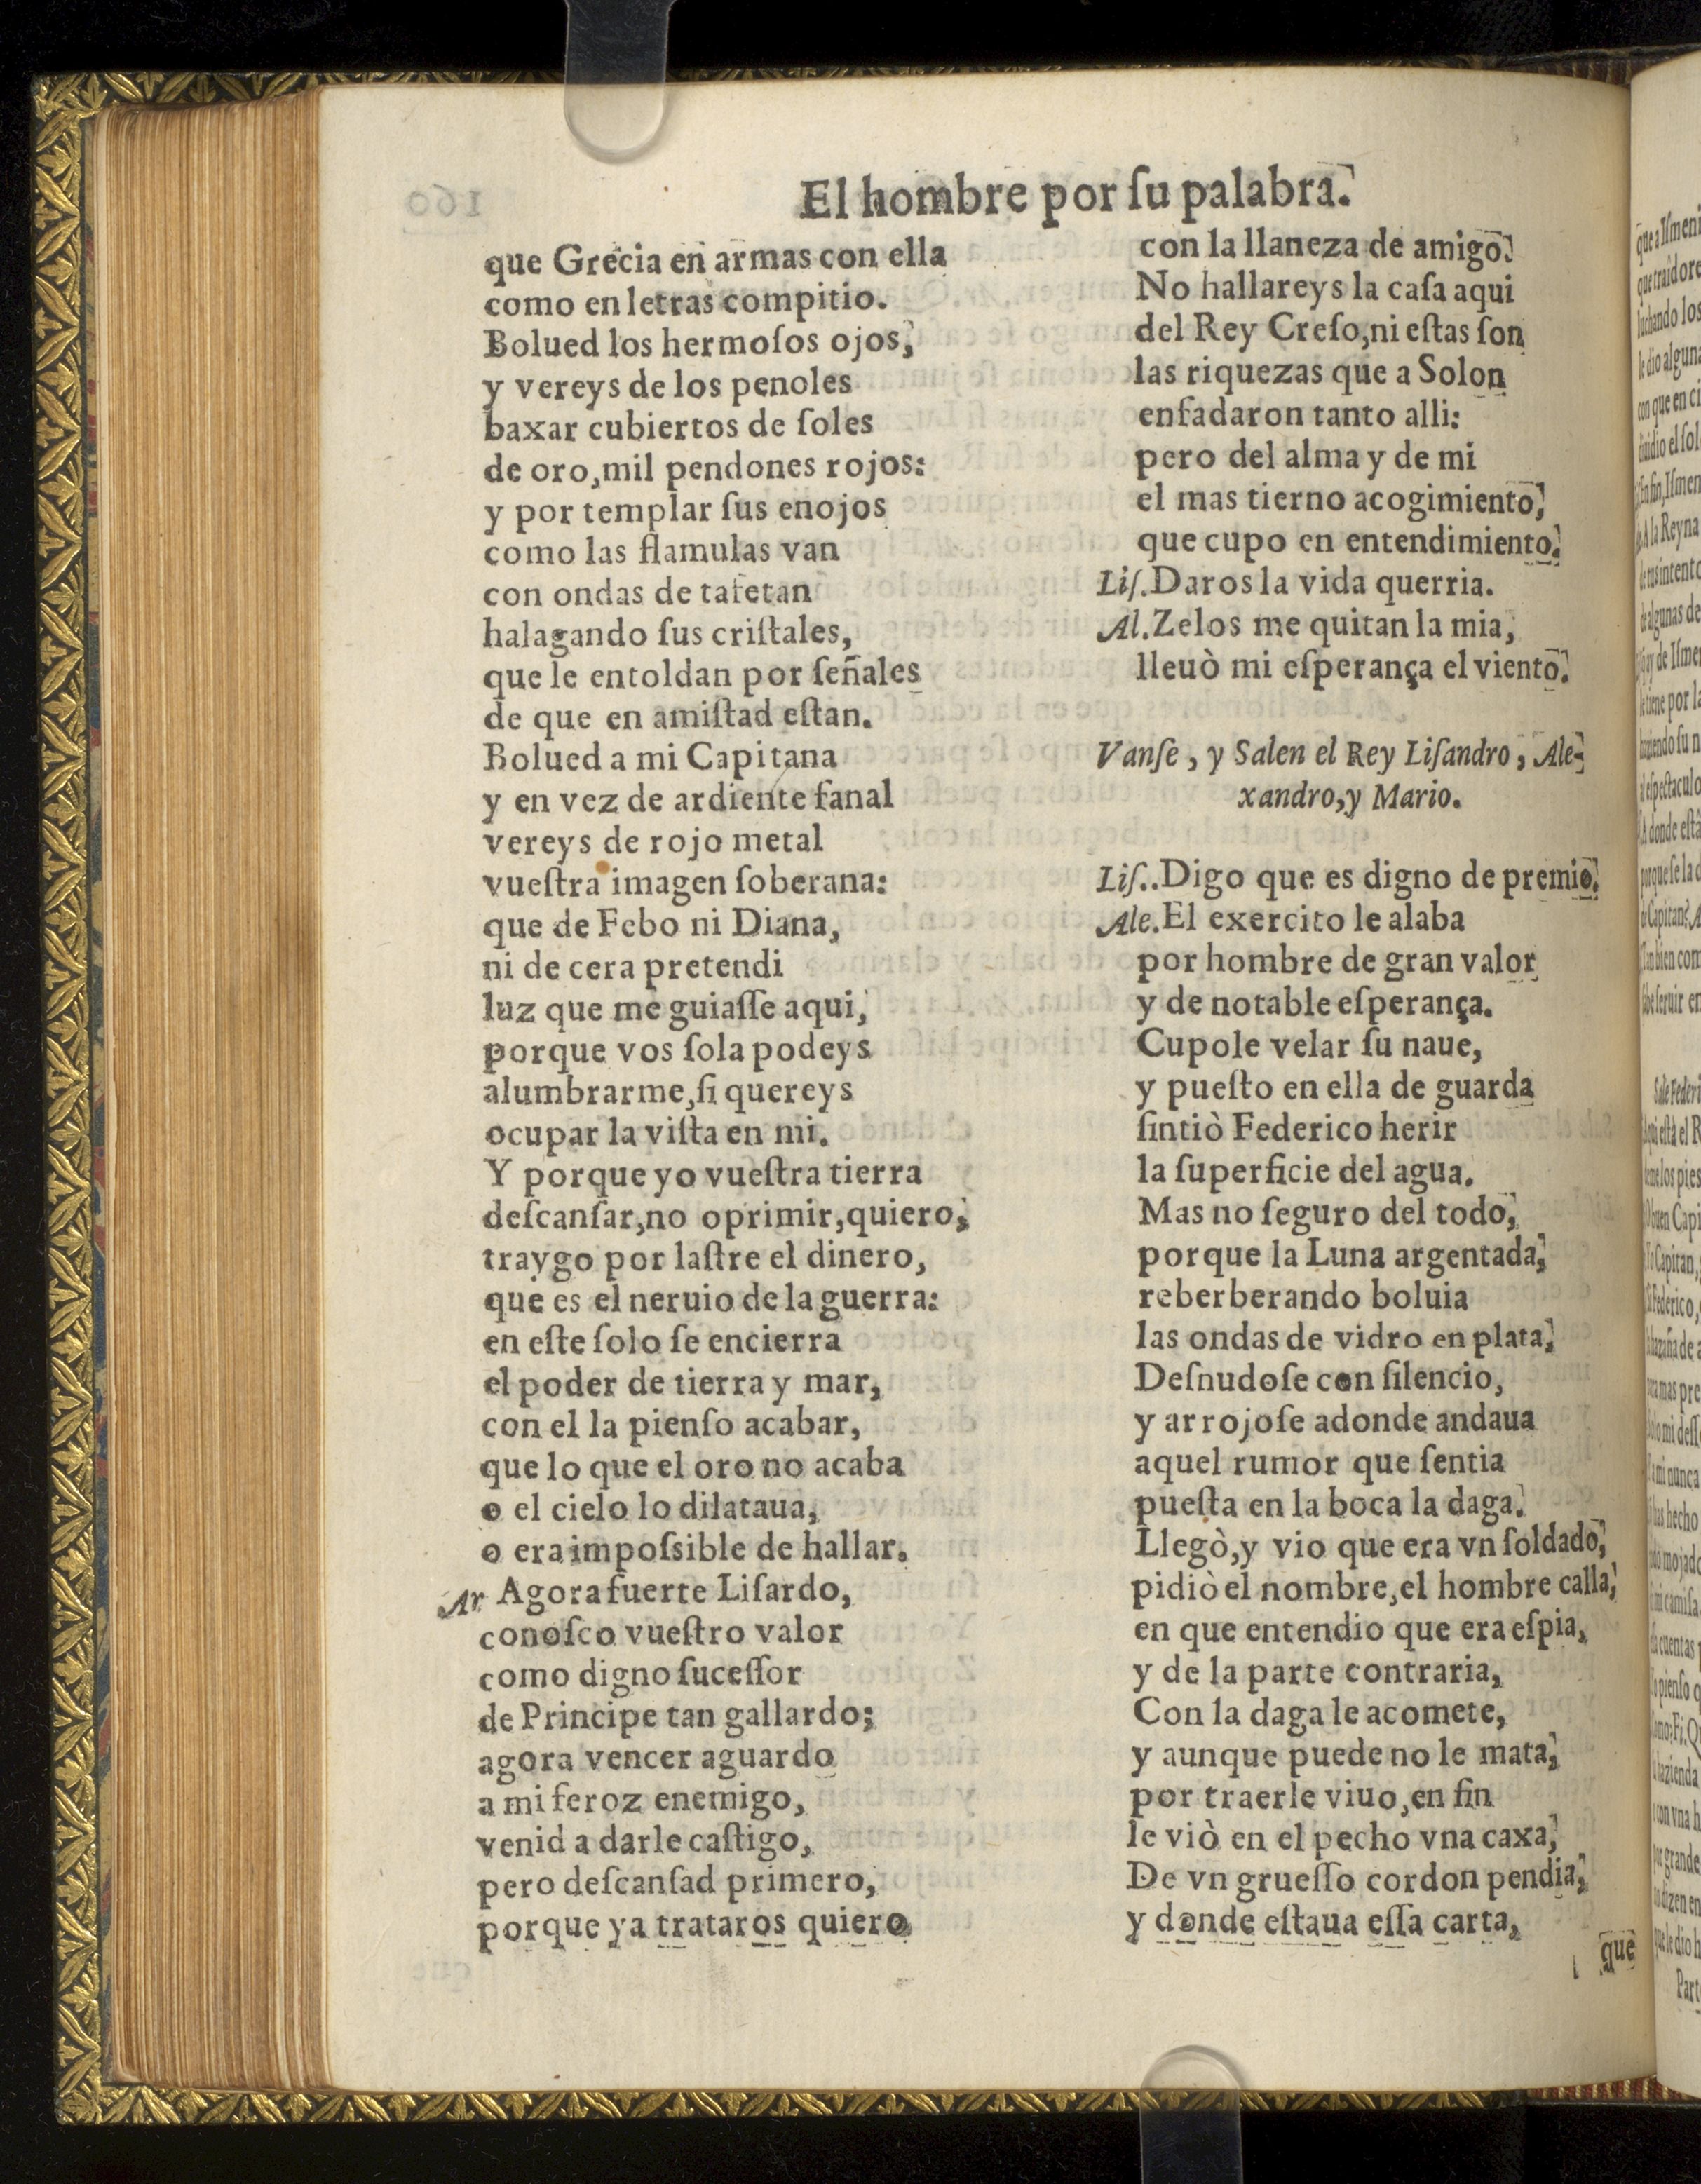 El hombre por ſu palabra.
que Grecia en armas con ella
como en letras compitio.
Bolued los hermoſos ojos,
y vereys de los penoles
baxar cubiertos de ſoles
de oro, mil pendones rojos:
y por templar ſus enojos
como las flamulas van
con ondas de tafetan
halagando ſus criſtales,
que le entoldan por ſeñales
de que en amiſtad eſtan.
Bolued a mi Capitana
y en vez de ardiente fanal
vereys de rojo metal
vueſtra imagen ſoberana:
que de Febo ni Diana,
ni de cera pretendi
luz que me guiaſſe aqui,
porque vos ſola podeys
alumbrarme, ſi quereys
ocupar la viſta en mi.
Y porque yo vueſtra tierra
deſcanſar, no oprimir, quiero,
traygo por laſtre el dinero,
que es el neruio de la guerra:
en eſte ſolo ſe encierra
el poder de tierra y mar,
con el la pienſo acabar,
que lo que el oro no acaba
o el cielo lo dilataua,
o era impoſsible de hallar.
Ar Agora fuerte Liſardo,
conoſco vueſtro valor
como digno ſuceſſor
de Principe tan gallardo;
agora vencer aguardo
a mi feroz enemigo,
venid a darle caſtigo,
pero deſcanſad primero,
porque ya trataros quiero
con la llaneza de amigo.
No hallareys la caſa aqui
del Rey Creſo, ni eſtas ſon
las riquezas que a Solon
enfadaron tanto alli:
pero del alma y de mi
el mas tierno acogimiento,
que cupo en entendimiento.
Liſ. Daros la vida querria.
Al. Zelos me quitan la mia,
lleuò mi eſperança el viento.
Vanſe, y Salen el Rey Liſandro, Ale-
xandro, y Mario.
Liſ.. Digo que es digno de premio.
Ale. El exercito le alaba
por hombre de gran valor
y de notable eſperança.
Cupole velar ſu naue,
y pueſto en ella de guarda
ſintiò Federico herir
la ſuperficie del agua.
Mas no ſeguro del todo,
porque la Luna argentada,
reberberando boluia
las ondas de vidro en plata,
Deſnudoſe con ſilencio,
y arrojoſe adonde andaua
aquel rumor que ſentia
pueſta en la boca la daga.
Llegò, y vio que era vn ſoldado,
pidiò el nombre, el hombre calla,
en que entendio que era eſpia,
y de la parte contraria,
Con la daga le acomete,
y aunque puede no le mata,
por traerle viuo, en fin
le viò en el pecho vna caxa,
De vn grueſſo cordon pendia,
y donde eſtaua eſſa carta,
que